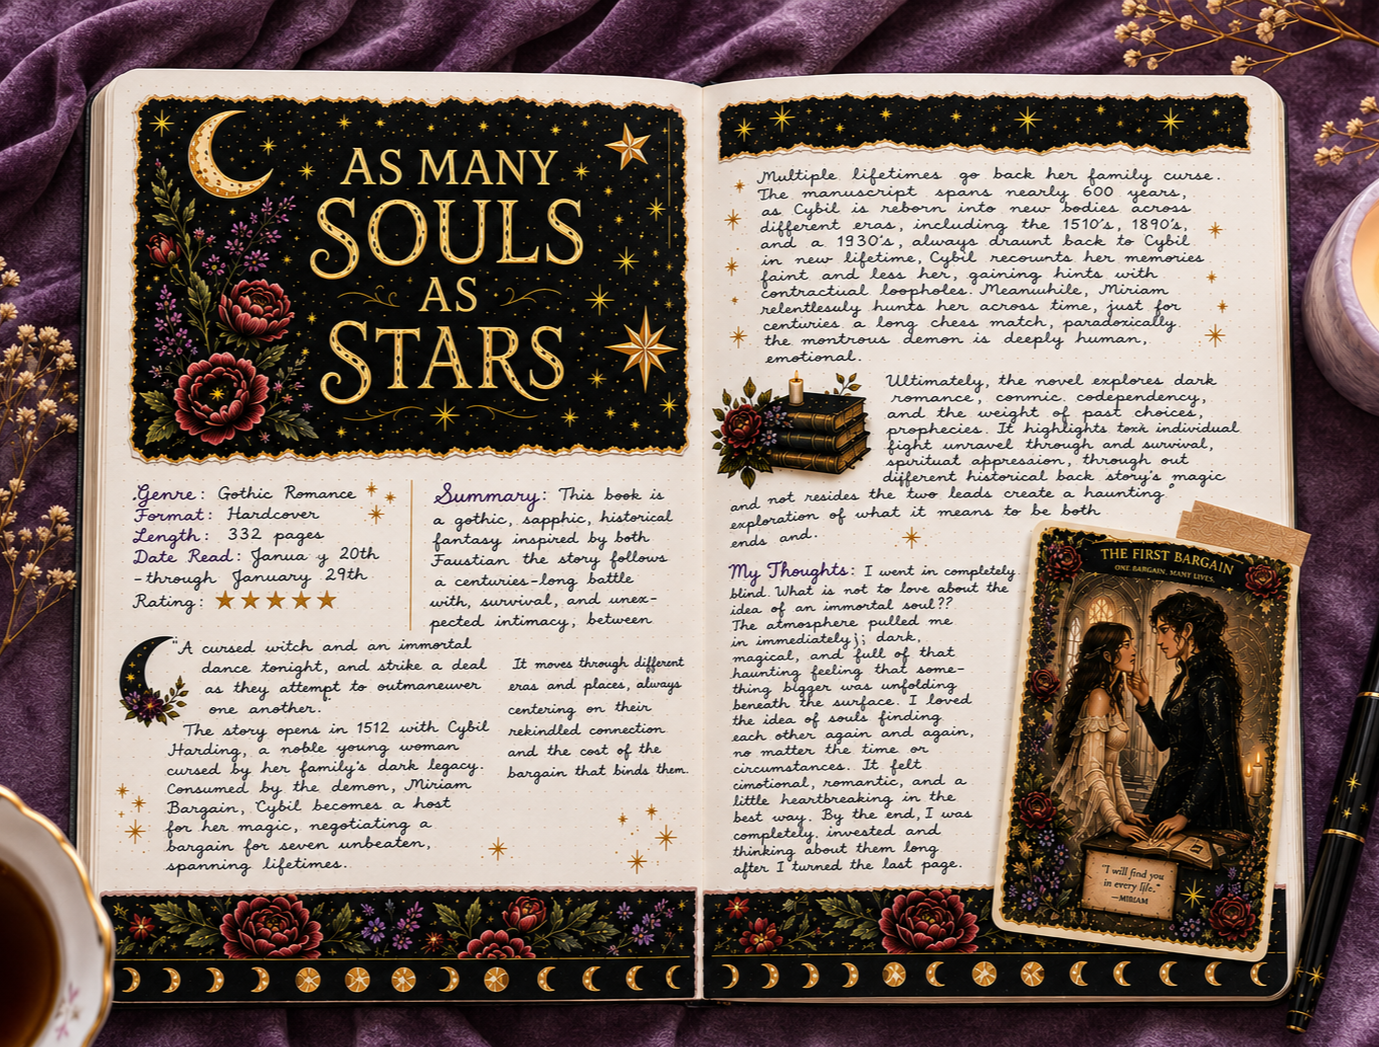 AS MANY
SOULS
AS
STARS
Genre: Gothic Romance
Format: Hardcover
Length: 332 pages
Date Read: Janua y 20th
-through January 29th
Rating: ★★★★★
Summary: This book is
a gothic, sapphic, historical
fantasy inspired by both
Faustian the story follows
a centuries-long battle
with, survival, and unex-
pected intimacy, between
"A cursed witch and an immortal
dance tonight, and strike a deal
as they attempt to outmaneuver
one another.
The story opens in 1512 with Cybil
Harding, a noble young woman
cursed by her family's dark legacy.
Consumed by the demon, Miriam
Bargain, Cybil becomes a host
for her magic, negotiating a
bargain for seven unbeaten,
spanning lifetimes.
It moves through different
eras and places, always
centering on their
rekindled connection
and the cost of the
bargain that binds them.
Multiple lifetimes go back her family curse.
The manuscript spans nearly 600 years,
as Cybil is reborn into new bodies across
different eras, including the 1510's, 1890's,
and a 1930's, always draunt back to Cybil
in new lifetime, Cybil recounts her memories
faint and less her, gaining hints with
contractual loopholes. Meanwhile, Miriam
relentlesuly hunts her across time, just for
centuries a long chess match, paradoxically
the montrous demon is deeply human,
emotional.
Ultimately, the novel explores dark
romance, conmic codependency,
and the weight of past choices,
prophecies. It highlights toxik individual
fight unravel through and survival,
spirituat appression, through out
different historical back story's magic
and not resides the two leads create a haunting
exploration of what it means to be both
ends and.
My Thoughts: I went in completely
blind. What is not to love about the
idea of an immortal soul??
The atmosphere pulled me
in immediately; dark,
magical, and full of that
haunting feeling that some-
thing bigger was unfolding
beneath the surface. I loved
the idea of souls finding
each other again and again,
no matter the time or
circumstances. It felt
cimotional, romantic, and a
little heartbreaking in the
best way. By the end, I was
completely. invested and
thinking about them long
after I turned the last page.
THE FIRST BARGAIN
ONE BARGAIN, MANY LIVES.
"I will find you
in every life."
—MIRIAM